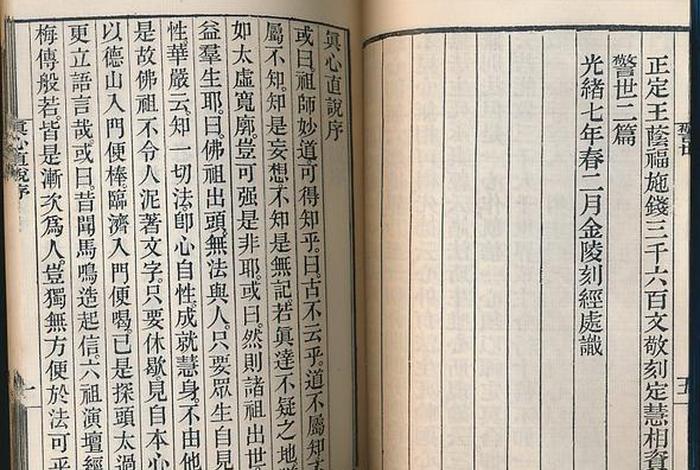 警世
五
正定王蔭福施錢三千六百文敬刻定慧相資
警世二篇
光緒七年春二月金陵刻經處識
眞心直說序
或曰。祖師妙道可得知乎。曰。古不云乎。道不屬知。
屬不知。知是妄想。不知是無記。若眞達不疑之地。
如太虛寬廓。豈可强是非耶。或曰。然則諸祖出世。
益羣生耶。曰。佛祖出頭。無法與人。只要眾生自見
性。華嚴云。知一切法。卽心自性。成就慧身。不由他
是故佛祖不令人泥著文字。只要休歇見自本心
以德山入門便棒。臨濟入門便喝。已是探頭太過
更立語言哉。或曰。昔聞馬鳴造起信。六祖演壇經
梅傳般若。皆是漸次爲人。豈獨無方便於法可乎
眞心直說序
一